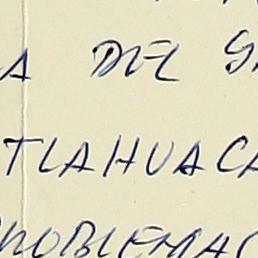 A DEL
TLAHUACA
PROBLEMAS